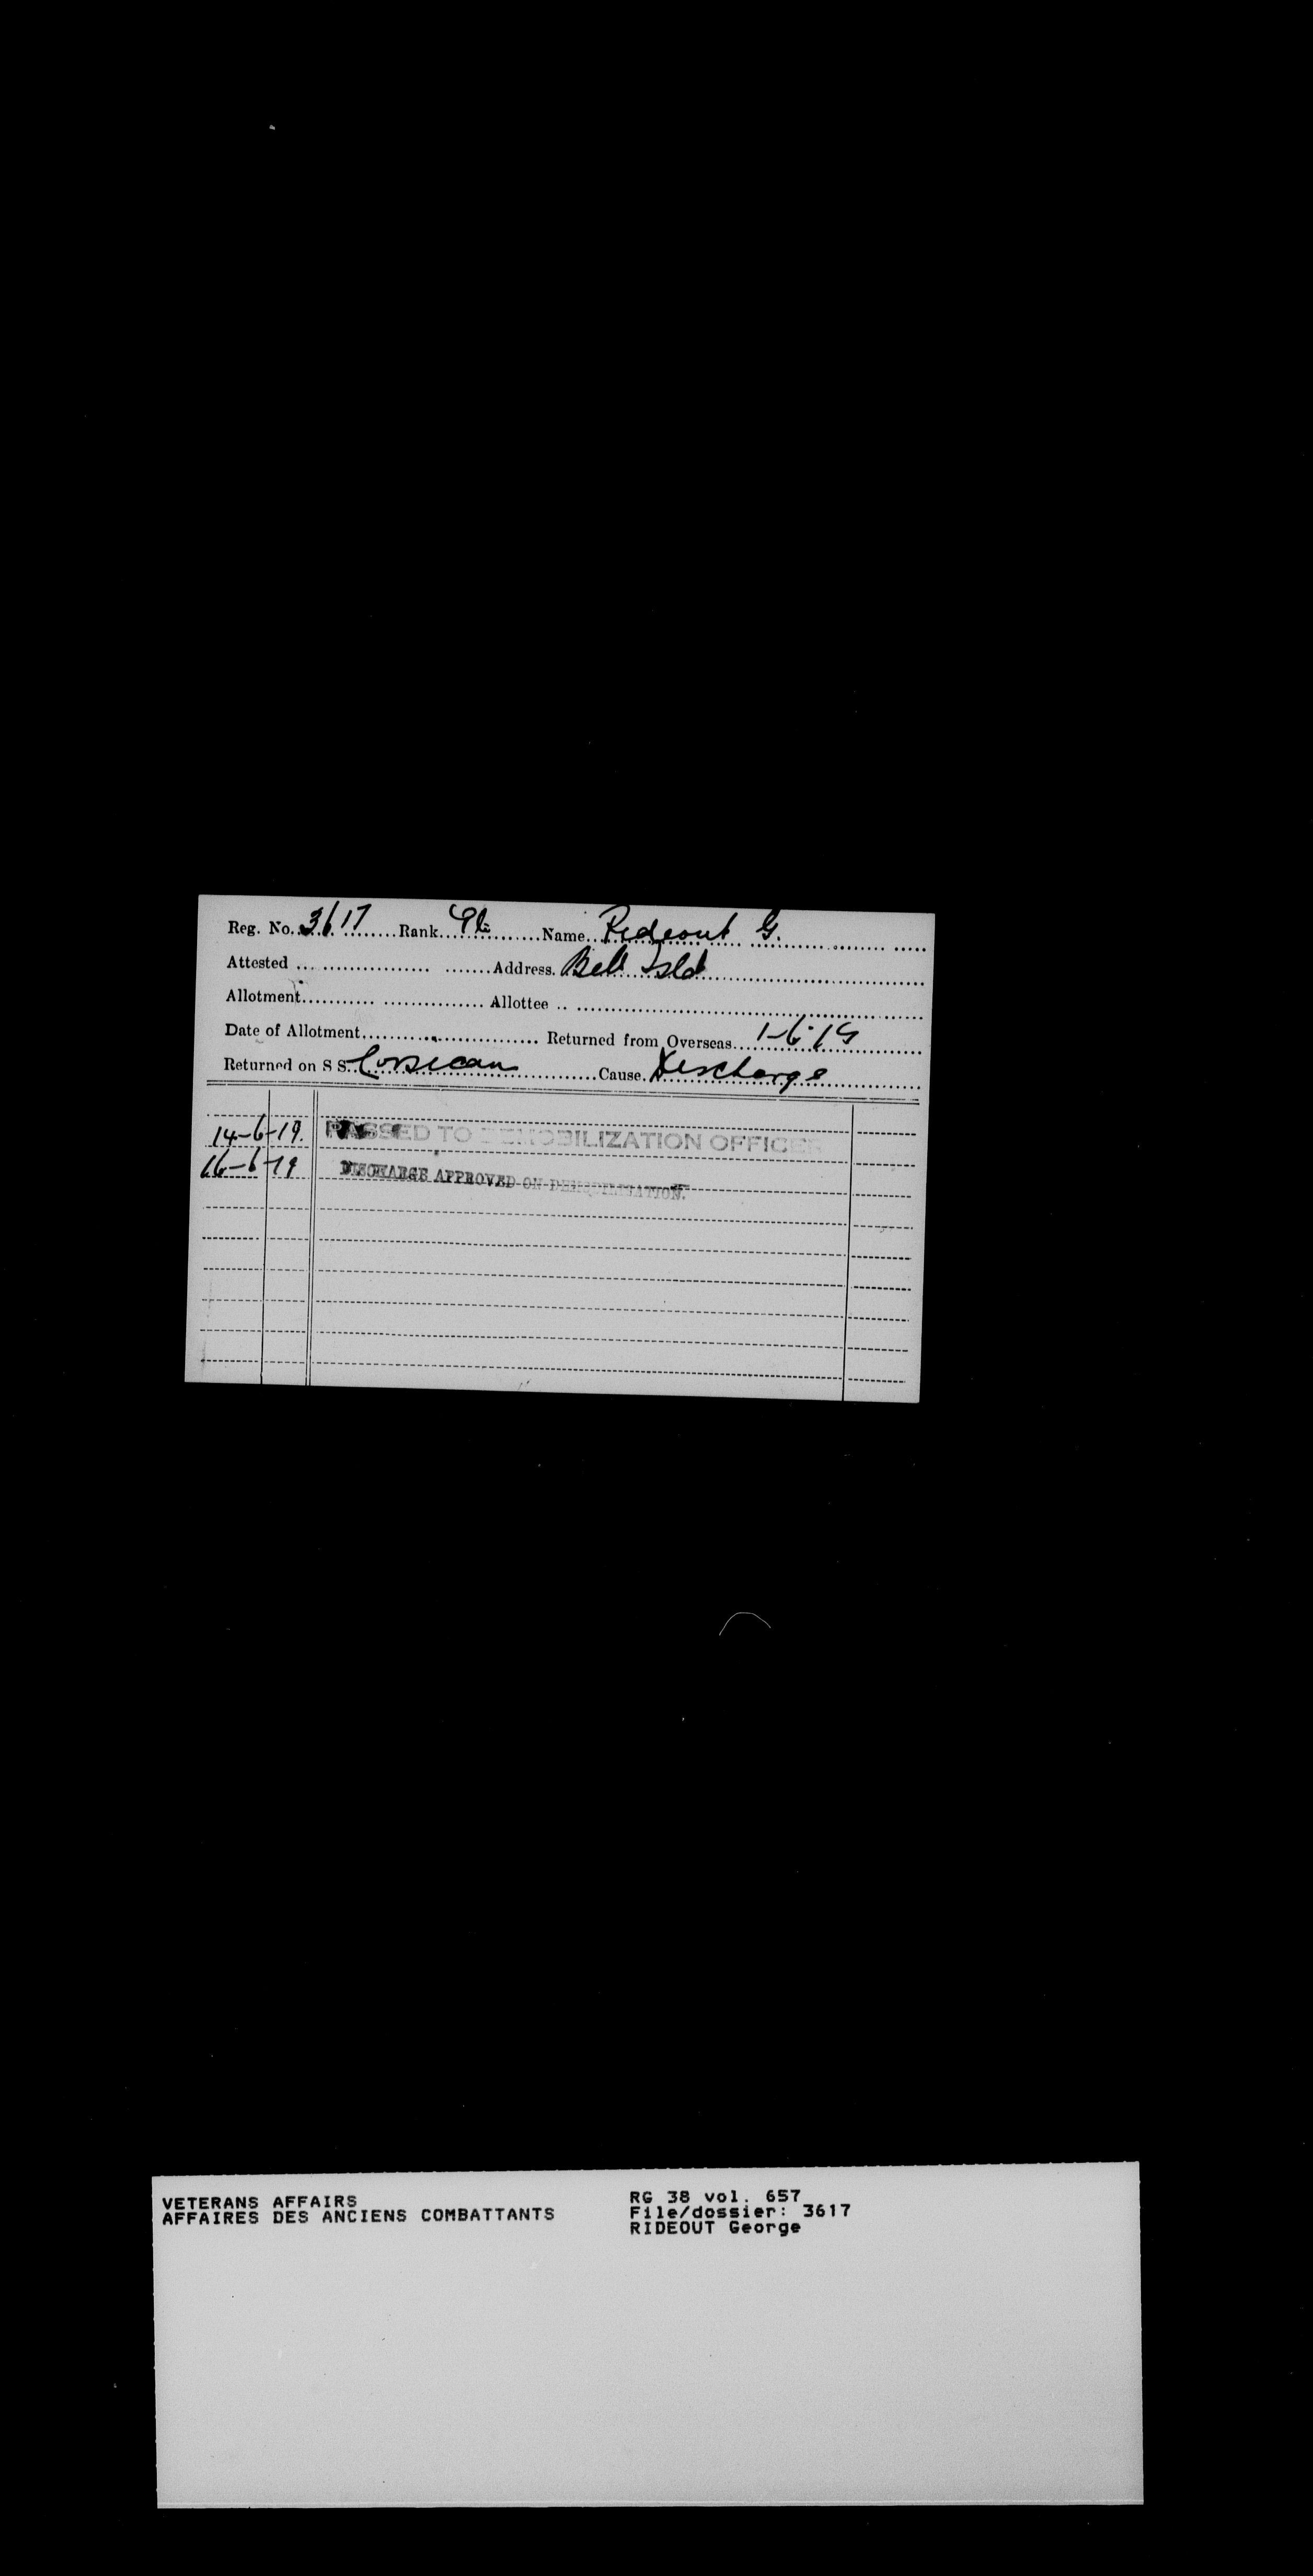 Reg. No. 3617 Rank Pte Name Rideout G.
Attested Address. Bell Isld
Allotment Allottee
Date of Allotment Returned from Overseas 1-6-19
Returned on S S. Corsican Cause Discharge
14-6-19. PASSED TO DEMOBILIZATION OFFICER
16-6-19 DISCHARGE APPROVED ON DEMOBILISATION.
VETERANS AFFAIRS RG 38 vol. 657
AFFAIRES DES ANCIENS COMBATTANTS File/dossier: 3617
RIDEOUT George